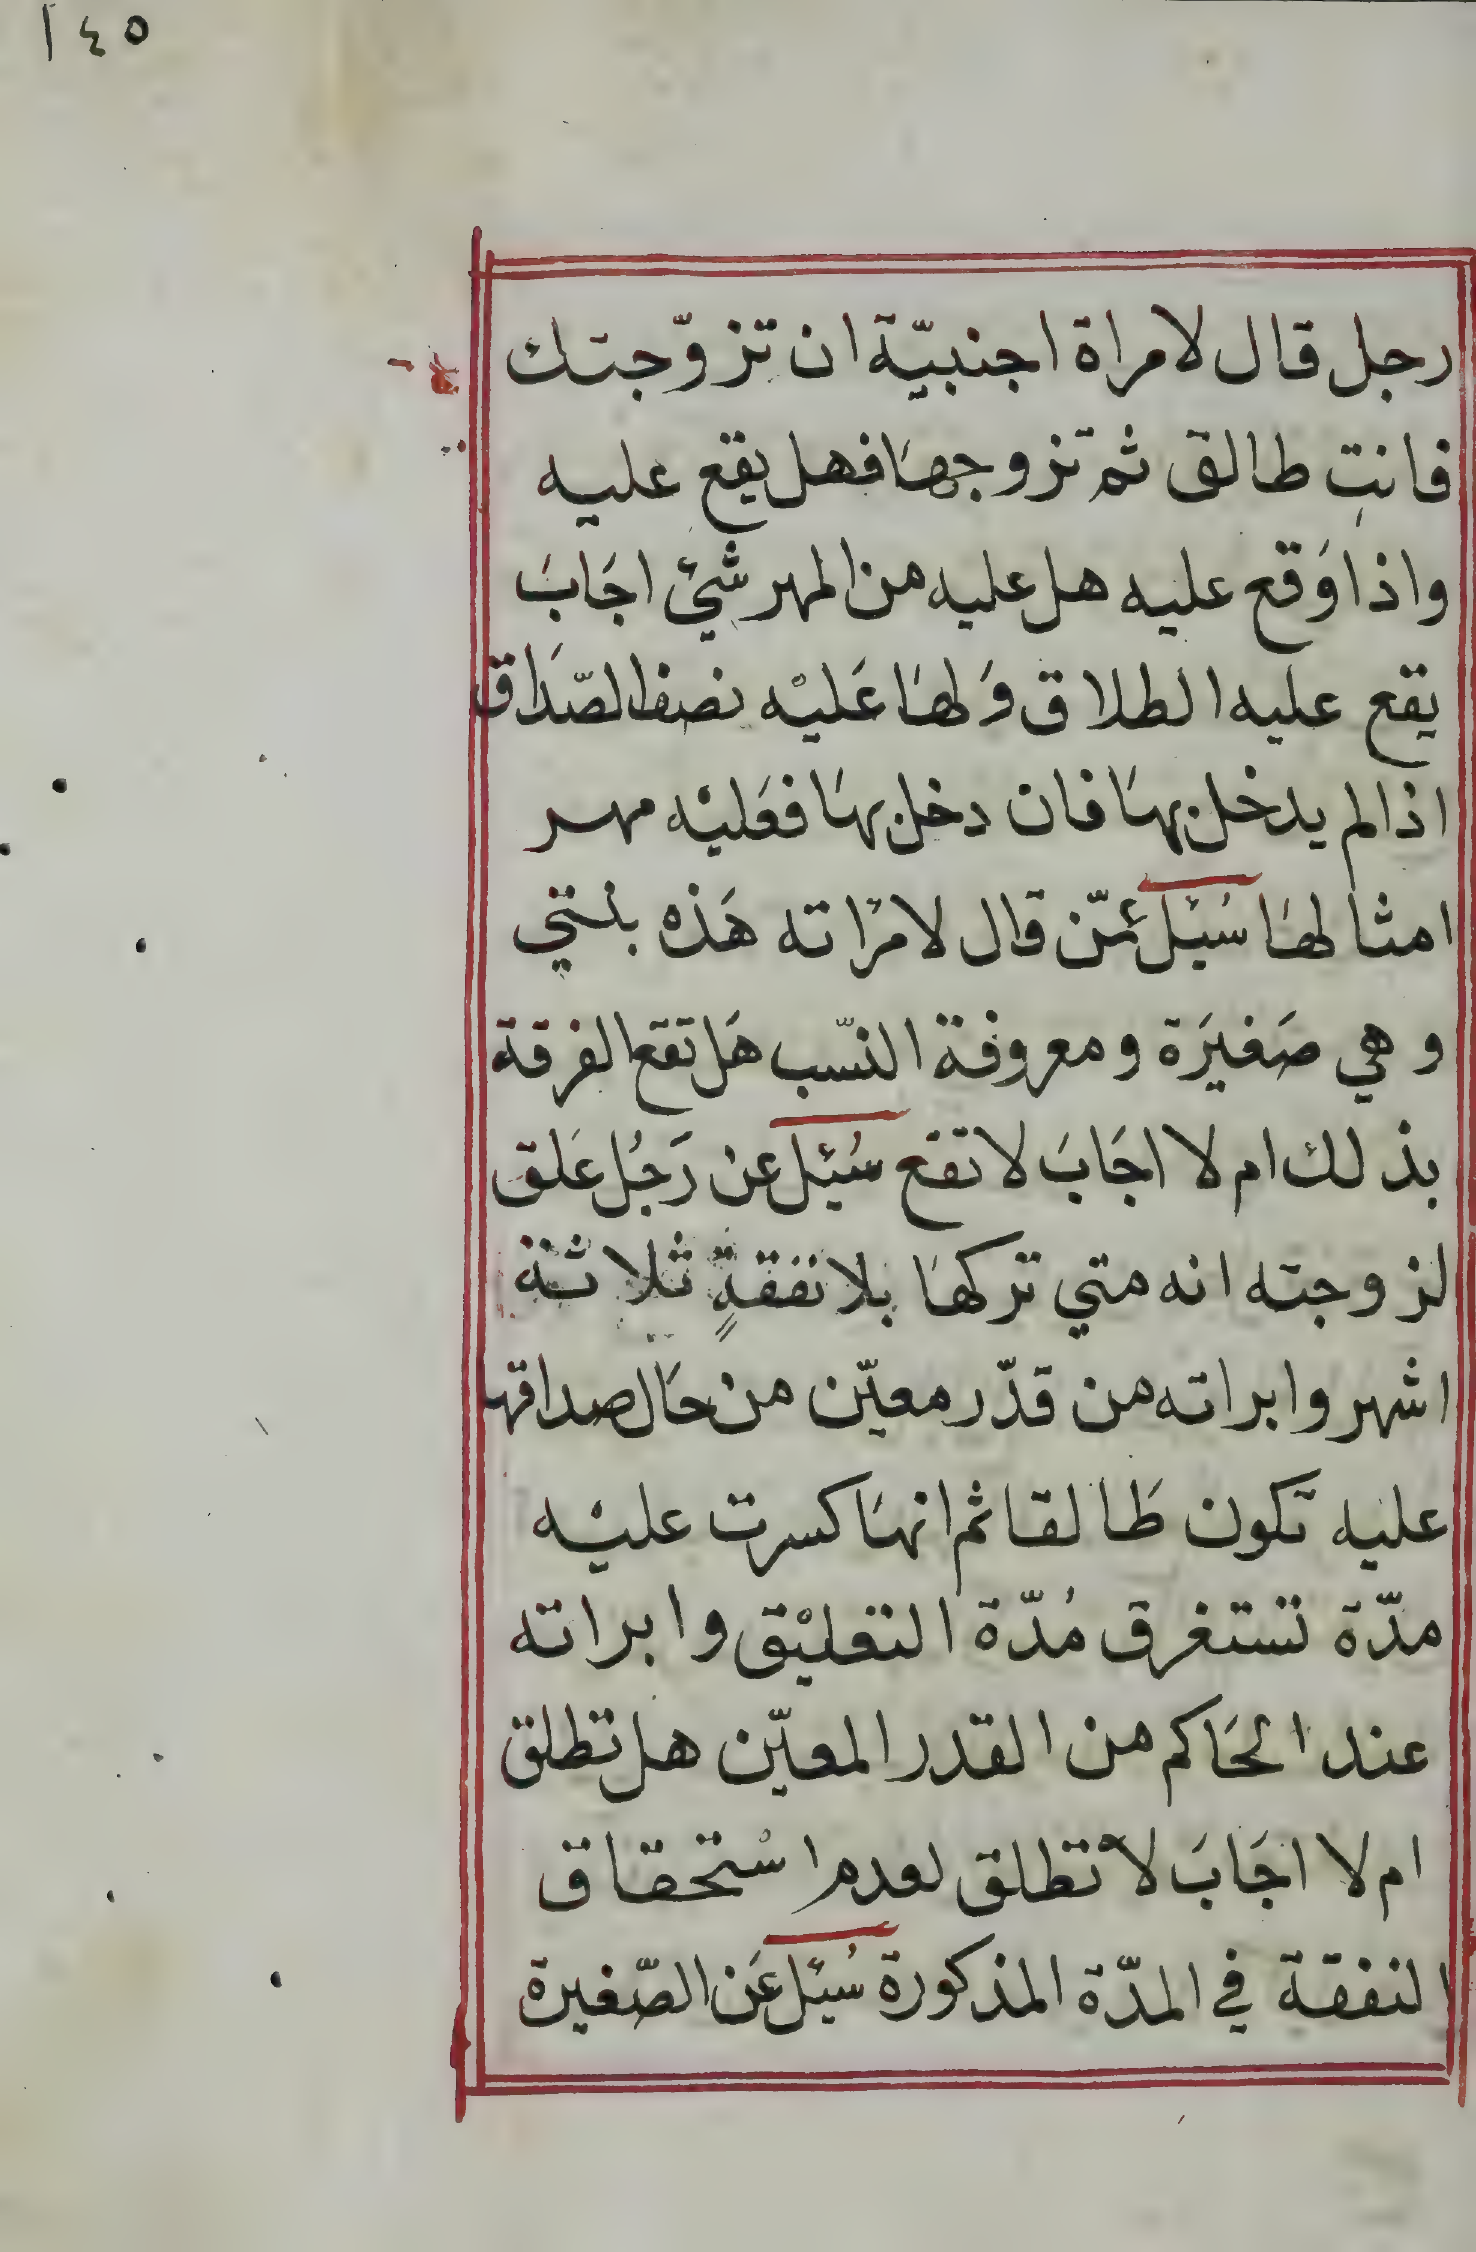 ١٤٥
رجل قال لامراة اجنبيّة ان تزوّجتك
فانتِ طالق ثم تزوجهَا فهل يقع عليه
واذا وَقع عليه هل عليه من المهر شئ اجَابَ
يقع عليه الطلاق وَلهَا عَليْه نصف الصّدَاق
اذا لم يدخل بهَا فان دخل بهَا فعَليْه مهر
امثالهَا سُئل عمّن قال لامرَاته هَذه بنتي
وهي صَغيَرة ومعروفة النّسب هَل تقع الفرقة
بذلك ام لا اجَابَ لا تقع سُئل عن رَجُل عَلق
لزوجته انه متي تركهَا بلا نفقةٍ ثلاثة
اشهر وابراته من قدّر معيّن من حَال صداقها
عليه تكون طَالقا ثم انهَا كسرت عليْه
مدّة تستغرق مُدّة التعليْق وابراته
عند الحَاكم من القدر المعيّن هل تطلق
ام لا اجَابَ لا تطلق لعدم استحقاق
النفقة في المدّة المذكورة سُئل عَن الصّغيرة